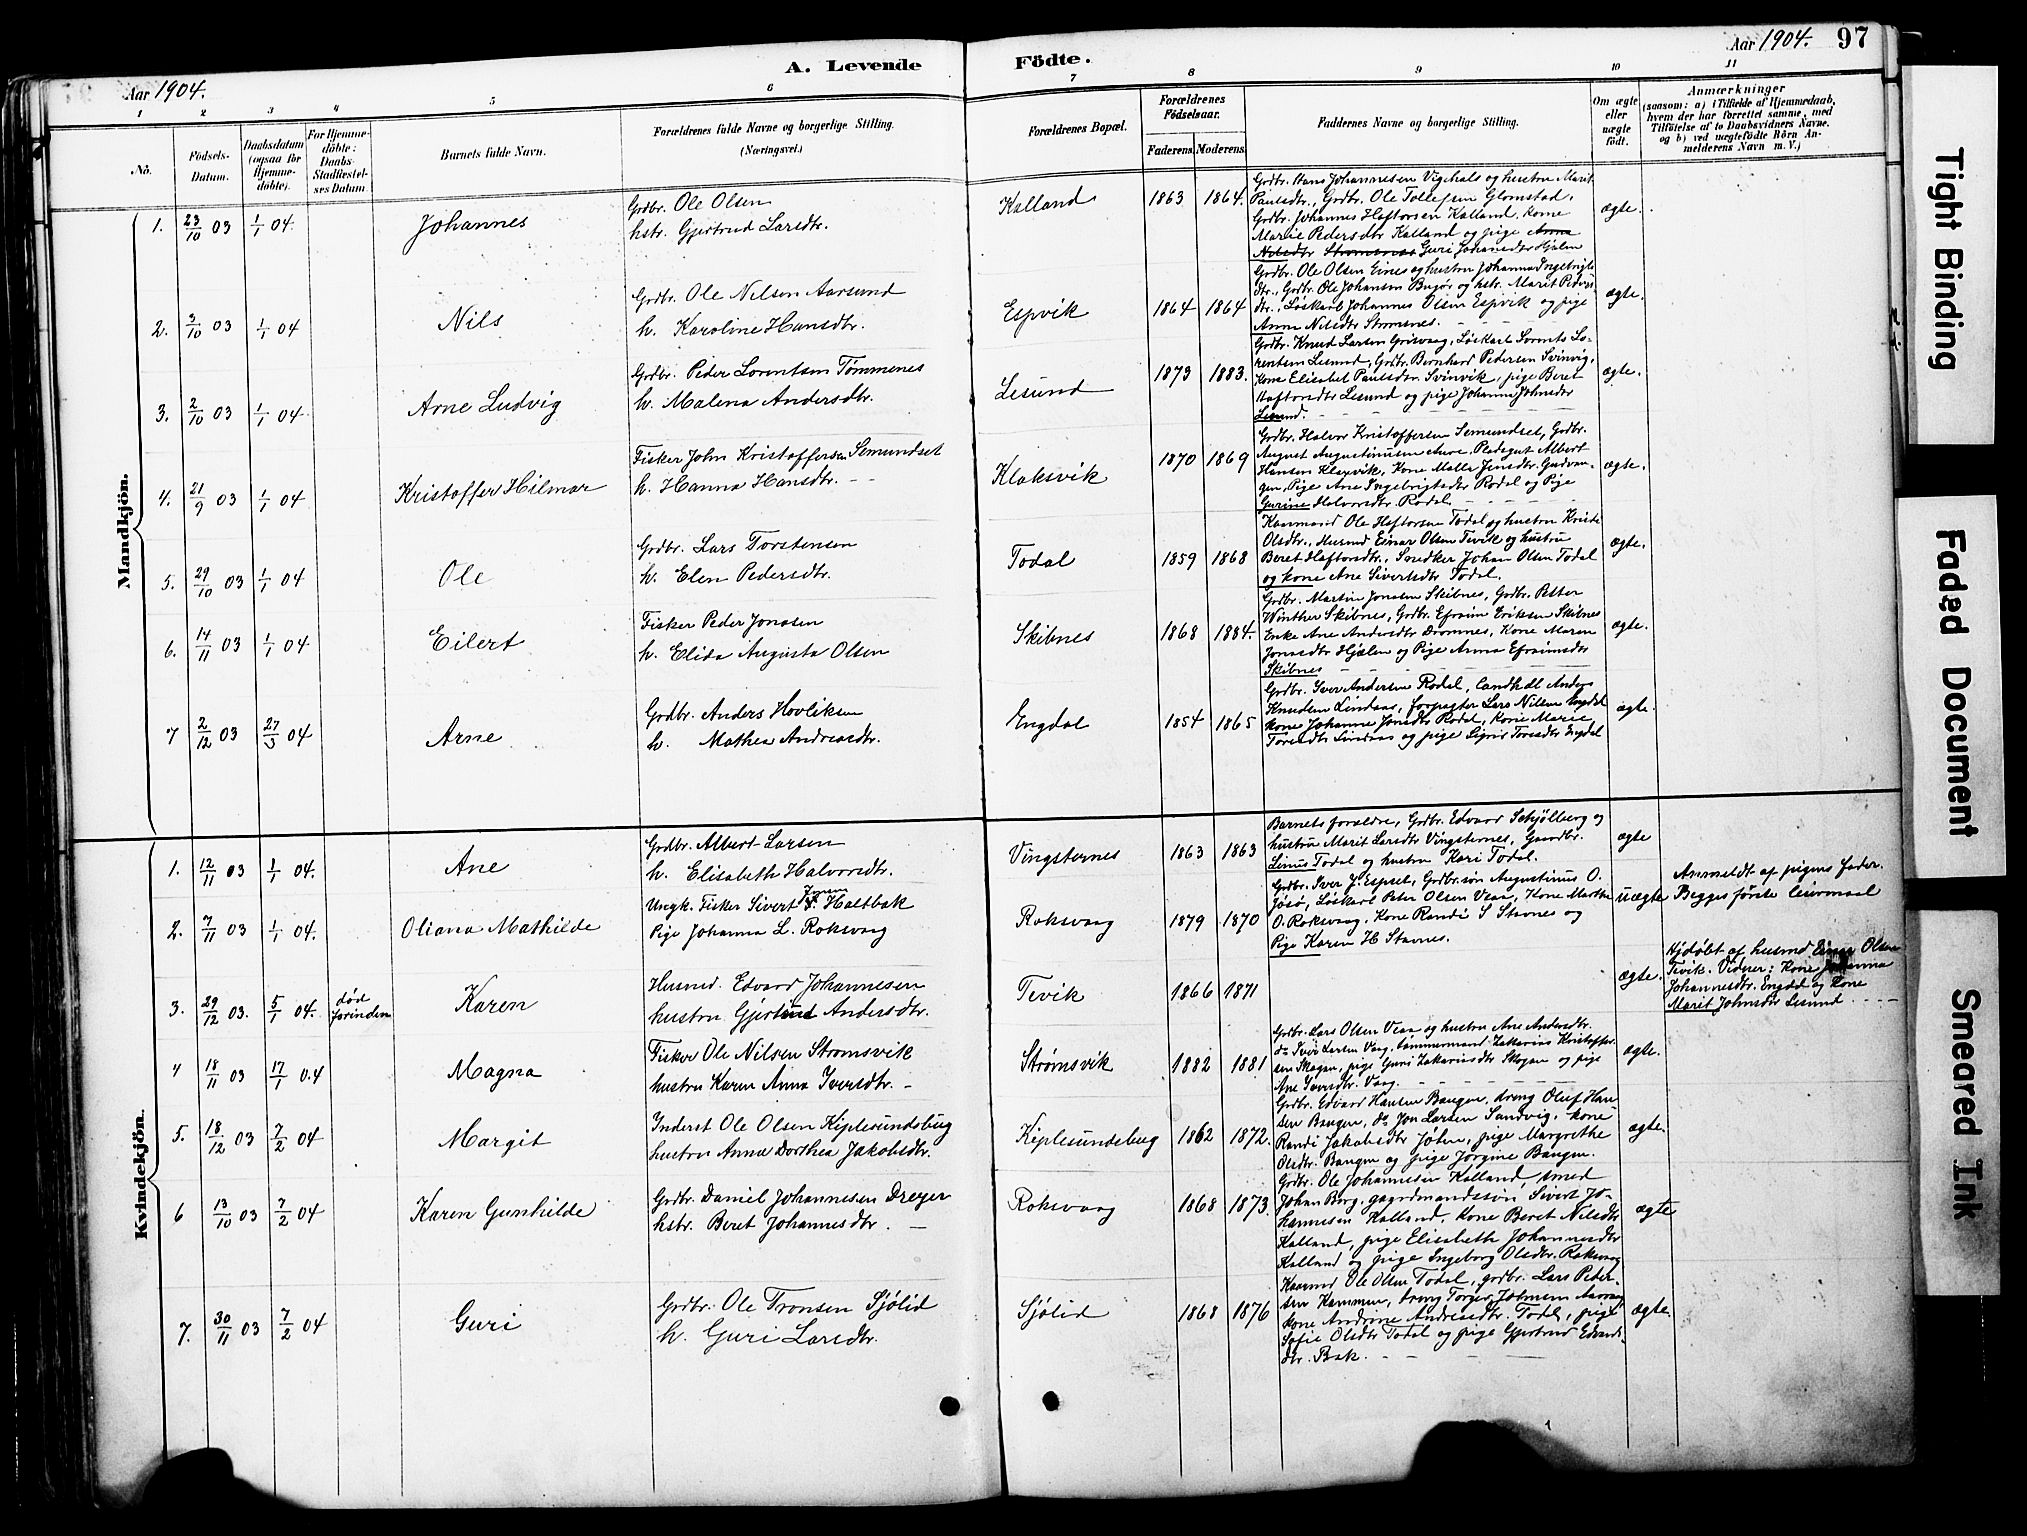 Aar 1904.
A. Levende Födte.
Aar 1904. 97
1 2 3 4 5 6 7 8 9 10 11
No.
Födsels-Datum.
Daabsdatum (ogsaa for Hjemme-döbte).
For Hjemme-döbte: Daabs-Stadfæstel-ses Datum
Barnets fulde Navn.
Forældrenes fulde Navne og borgerlige Stilling.
(Næringsvei.)
Forældrenes Bopæl.
Forældrenes Födselsaar.
Faderens Moderens
Faddernes Navne og borgerlige Stilling.
Om ægte eller uægte födt.
Anmærkninger
(saasom: a) i Tilfælde af Hjemmedaab,
hvem der har forrettet samme, med
Tilföielse af to Daabsvidners Navne,
og b) ved uægtefödte Börn An-
melderens Navn m. V.)
Mandkjön.
1. 23/10 03 1/1 04. Johannes
Grdbr. Ole Olsen
hstr. Gjertrud Larsdtr.
Kalland 1863 1864.
Grdbr. Hans Johannesen Vigehals og hustru Marit
Paulsdtr., Grdbr. Ole Tollefsen Glomstad,
Grdbr. Johannes Haftorsen Kalland, kone
Marie Pedersdtr Kalland og pige Anna
Nilsdtr Strømsnes Guri Johansdtr Hjelm
ægte.
2. 3/10 03 1/1 04 Nils
Grdbr. Ole Nilsen Aarsund
h. Karoline Hansdtr.
Espvik 1864 1864
Grdbr. Ole Olsen Eines og hustru Johanna Ingebrigts
dtr., Grdbr. Ole Johansen Bugør og hstr. Marit Peders
dtr., Løskarl Johannes Olsen Espvik og pige
Anne Nilsdtr Strømsnes.
ægte.
3. 2/10 03 1/1 04 Arne Ludvig
Grdbr. Peder Lorentsen Tömmernes
h. Malena Andersdtr.
Lesund 1873 1883.
Grdbr. Knud Larsen Grisvaag, Løskarl Lorents Lo-
rentsen Lesund, Grdbr. Bernhard Pedersen Svinvig,
Kone Elisabet Paulsdtr Svinvik, pige Beret
Haftorsdtr Lesund og pige Johanna Johnsdtr
Lesund.
ægte.
4. 21/9 03 1/1 04 Kristoffer Hilmar
Fisker John Kristoffersen Semundset
h. Hanna Hansdtr.
Klaksvik 1870 1869
Grdbr. Halvor Kristoffersen Semundset, Grdbr.
August Augustinusen Aure, Pladsgut Albert
Hansen Klaxvik, Kone Malla Jensdtr. Gudvan-
gen, Pige Ane Ingebrigtsdtr Rodal og Pige
Gurine Halvorsdtr Rodal.
ægte.
5. 29/10 03 1/1 04 Ole
Grdbr. Lars Torstensen
h. Elen Pedersdtr.
Todal 1859 1868
Kaarmand Ole Haftorsen Todal og hustru Kristi
Olsdtr., Husmd Einar Olsen Tevik og hustru
Beret Haftorsdtr., Snedker Johan Olsen Todal
og kone Ane Sivertsdtr Todal.
ægte.
6. 14/11 03 1/1 04 Eilert
Fisker Peder Jonasen
h. Elida Augusta Olsen
Skibnes 1868 1884.
Grdbr. Martin Jonasen Skibnes, Grdbr. Petter
Winther Skibnes, Grdbr. Efraim Eriksen Skibnes
Enke Ane Andersdtr Dromnes, Kone Maren
Jonasdtr Hjelen og Pige Anna Efraimsdtr
Skibnes
ægte.
7 2/12 03 27/3 04 Arne
Grdbr. Anders Hovliksen
h. Mathea Andreasdtr.
Engdal 1854 1865
Grdbr. Iver Andersen Rodal, Landhdl Anders
Knudsen Lindaas, forpagter Lars Nilsen Engdal
kone Johanne Jonsdtr Rodal, Kone Marie
Toresdtr Lindaas og pige Sigrid Toresdtr Engdal
ægte.
Kvindekjön.
1. 12/11 03 1/1 04. Ane
Grdbr. Albert Larsen
h. Elisabeth Halvorsdtr.
Vingsternes 1863 1863
Barnets forældre, Grdbr. Edvard Schjølberg og
hustru Marit Larsdtr Vingsternes, Gaardbr.
Linus Todal og hustru Kari Todal.
ægte
2. 7/11 03 1/1 04. Oliana Mathilde
Ungk. Fisker Sivert Jonsen Holtbak
Pige Johanna L. Roksvaag
Roksvaag 1879 1870
Grdbr. Iver J. Espset, Grdbr.søn Augustinus O.
Jøsø, Løskarl Peter Olsen Vean, Kone Marthe
O. Roksvaag, Kone Randi S Stavnes og
Pige Karen H Stavnes.
uægte
Anmeldt af pigens fader.
Begges første leiermaal
3. 29/12 03. 5/1 04. død forinden Karen
Husmd. Edvard Johannesen
hustru Gjertrud Andersdtr.
Tevik 1866 1871
ægte.
Hjdøbt af husmd Einar Olsen
Tevik. Vidner: Kone Johanna
Johannesdtr. Engdal og Kone
Marit Johnsdtr Lesund
4 18/11 03 17/1 04 Magna
Fisker Ole Nilsen Strømsvik
hustru Karen Anna Iversdtr.
Strømsvik 1882 1881
Grdbr. Lars Olsen Vean og hustru Ane Andersdtr.
do Iver Larsen Vaag, tømmermand Zakarias Kristoffer-
sen Skogan, pige Guri Zakariasdtr Skogan og pige
Ane Iversdtr. Vaag.
ægte.
5. 18/12 03 7/2 04 Margit
Inderst Ole Olsen Kiplesundsbug
hustru Anna Dorthea Jakobsdtr.
Kiplesundsbug 1862 1872.
Grdbr. Edvard Hansen Bangen, dreng Oluf Han-
sen Bangen, do Jon Larsen Sandvig, kone
Randi Jakobsdtr Jøten, pige Margrethe
Olsdtr. Bangen og pige Jørgine Bangen.
ægte.
6 13/10 03 7/2 04 Karen Gunhilde
Grdbr. Daniel Johannesen Dreyer
hstr. Beret Johannesdtr.
Roksvaag 1868 1873.
Grdbr. Ole Johannesen Kalland, smed
Johan Borg, gaardmandssøn Sivert Jo-
hannesen Kalland, kone Beret Nilsdtr
Kalland, pige Elisabeth Johannesdtr
Kalland og pige Ingeborg Olsdtr. Roksvaag
ægte
7. 30/11 03 7/2 04 Guri
Grdbr. Ole Tronsen Sjølid
h. Guri Larsdtr.
Sjølid 1868 1876
Kaarmd Ole Olsen Todal, grdbr. Lars Peder-
sen Kammen, dreng Torger Johnsen Aarvaag
kone Andrine Andreasdtr. Todal, pige
Sofie Olsdtr Todal og pige Gjertrud Edvards-
dtr. Bak.
ægte.
Tight Binding
Faded Document
Smeared Ink